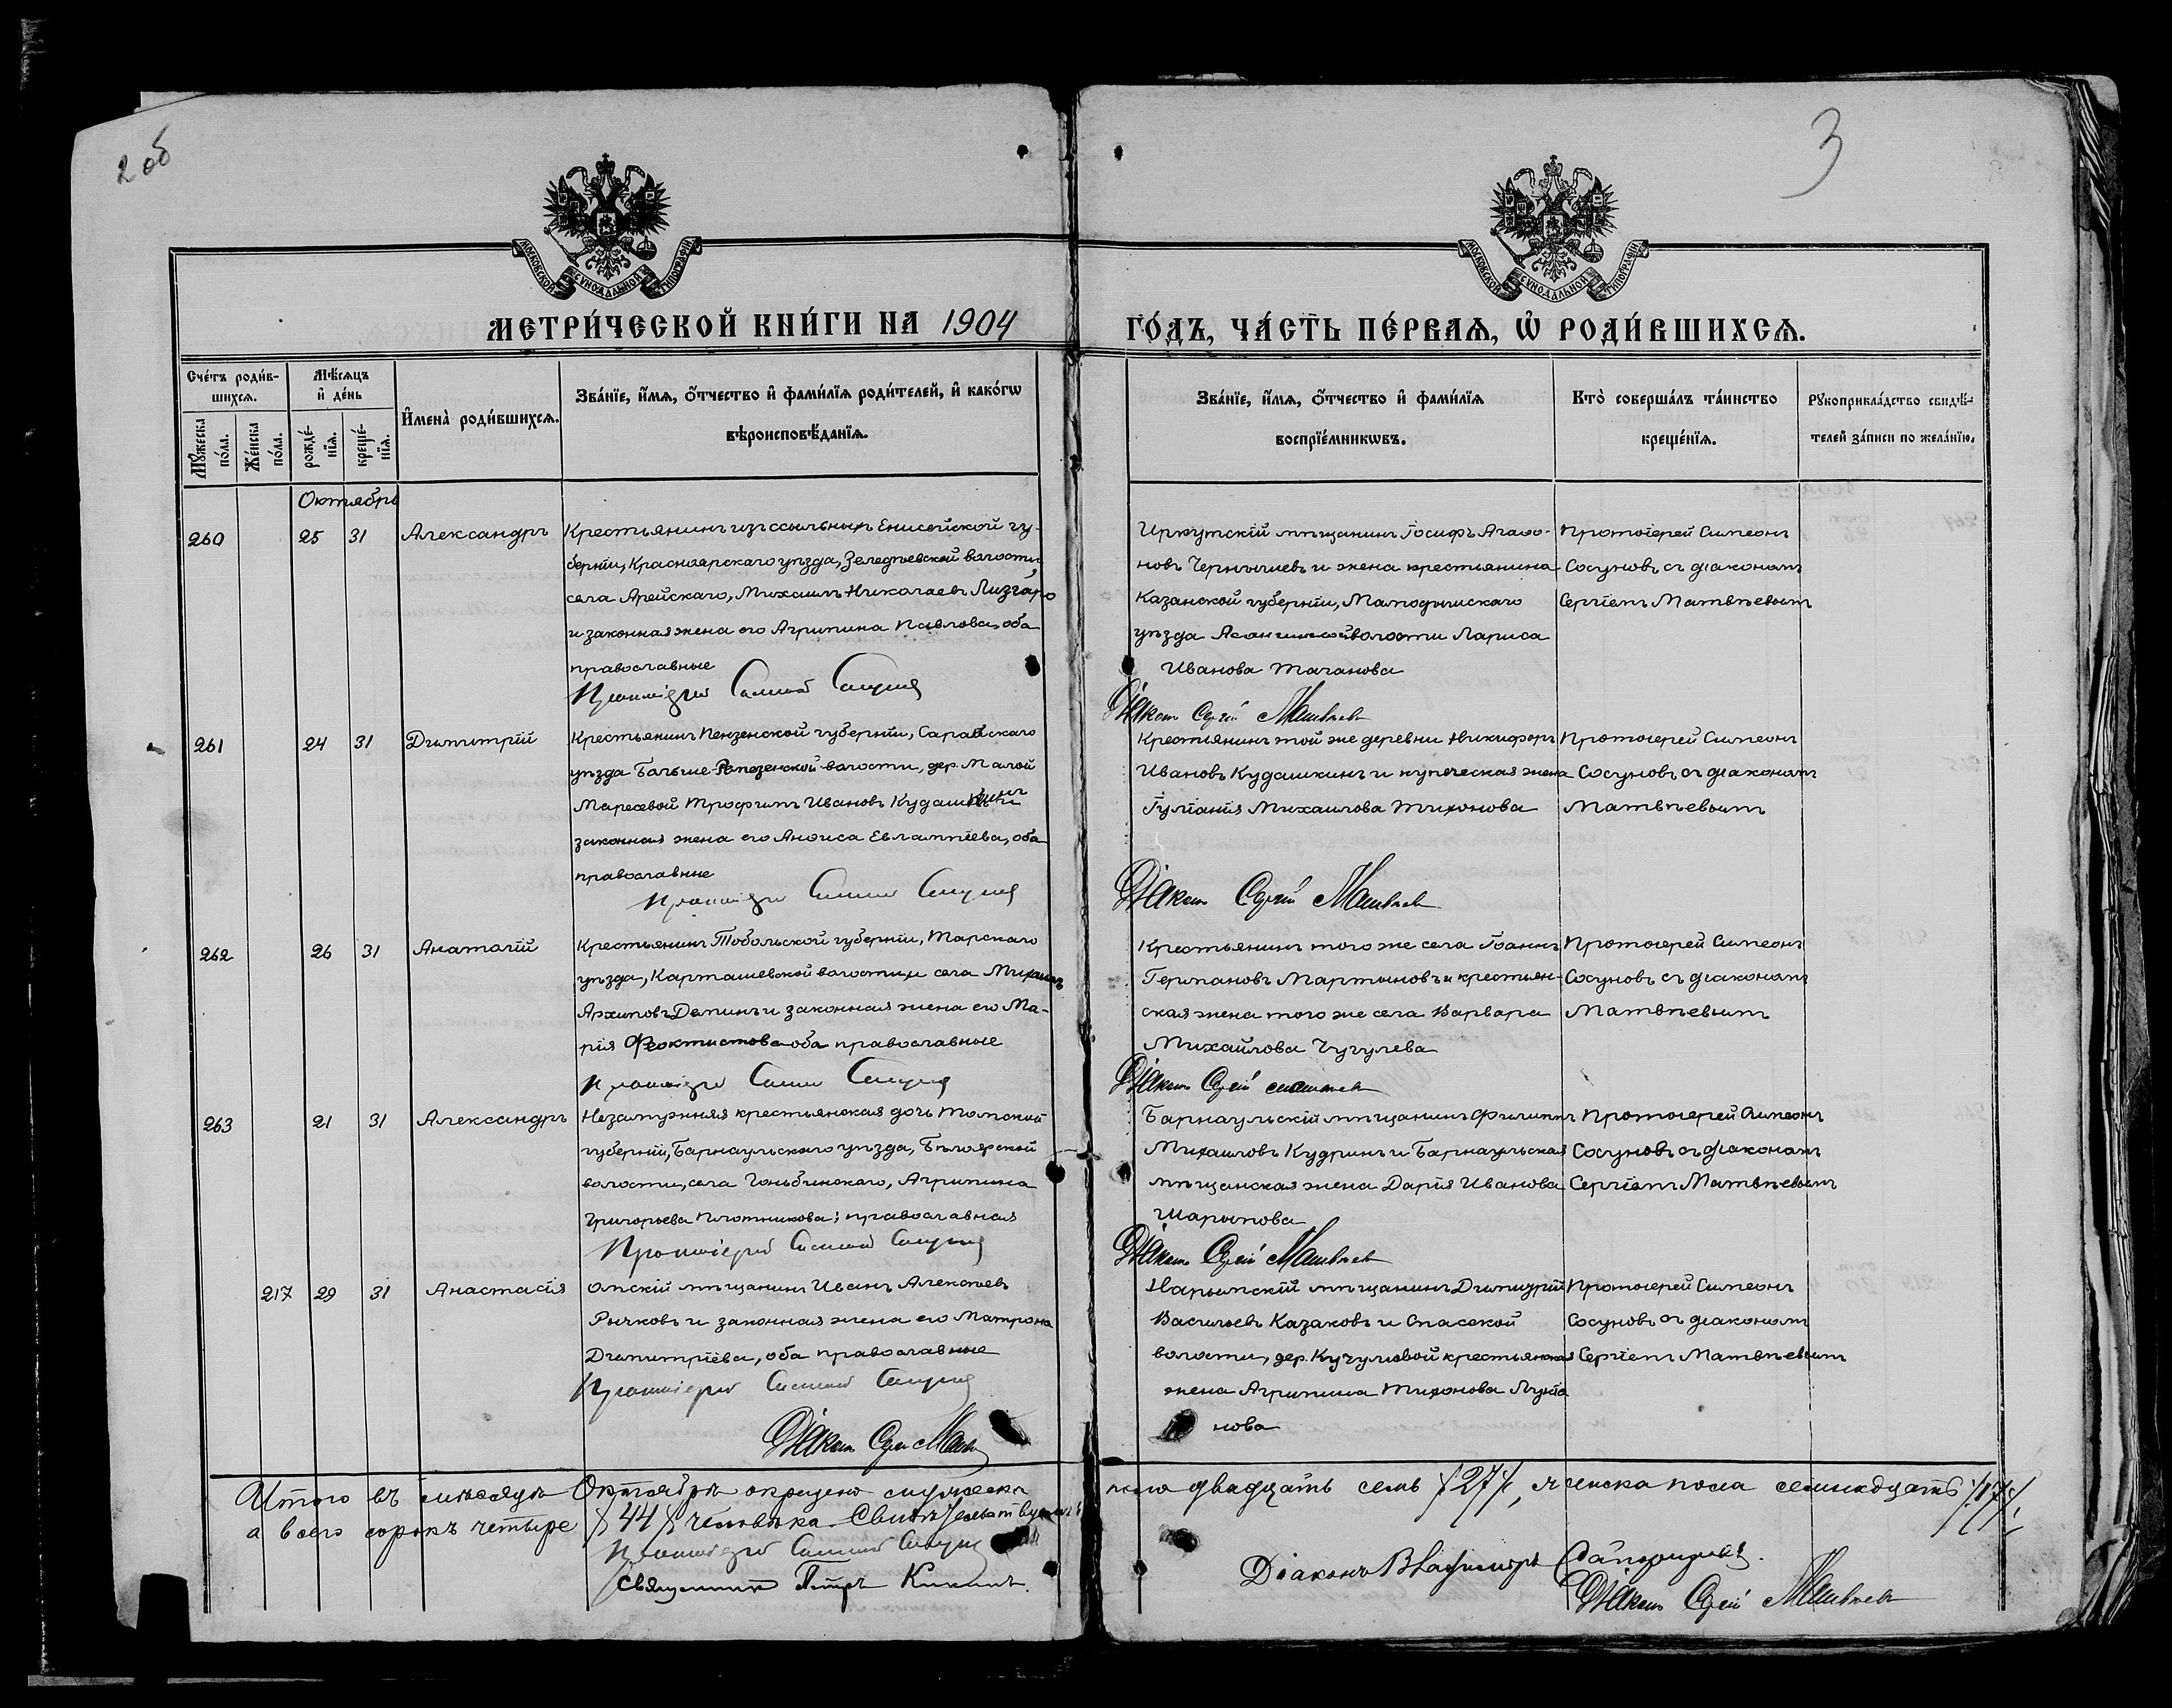 2 об
3
МОСКОВСКОЙ СУНОДАЛЬНОЙ ТИПОГРАФІИ
МОСКОВСКОЙ СУНОДАЛЬНОЙ ТИПОГРАФІИ
МЕТРИ́ЧЕСКОЙ КНИ́ГИ НА 1904 ГО́ДЪ, ЧА́СТЬ ПЕ́РВАѦ, Ѡ҆ РОДИ́ВШИХСѦ.
Сче́тъ роди́в-
шихсѧ.
Мѣ́сѧцъ
и҆ де́нь
Мꙋ́жеска
по́ла.
Же́нска
по́ла.
рожде́-
нїѧ.
креще́-
нїѧ.
И҆мена̀ роди́вшихсѧ.
Зва́нїе, и҆́мѧ, ѻ҆́тчество и҆ фами́лїѧ роди́телей, и҆ како́гѡ
вѣроисповѣ́данїѧ.
Зва́нїе, и҆́мѧ, ѻ҆́тчество и҆ фами́лїѧ
воспрїе́мникѡвъ.
Кто̀ соверша́лъ та́инство
креще́нїѧ.
Рꙋкоприкла́дство свидѣ́-
телей за́писи по жела́нїю.
Октябрь
260 25 31 Александръ
Крестьянинъ изъ ссыльныхъ Енисейской гу-
берніи, Красноярскаго уѣзда, Заледѣевской волости,
села Арейскаго, Михаилъ Николаевъ Лизгаро
и законная жена его Агрипина Павлова, оба
православные
Протоіерей Симеонъ Сосуновъ
Иркутскій мѣщанинъ Іосифъ Агаѳо-
новъ Чернышевъ и жена крестьянина
Казанской губерніи, Мамодышскаго
уѣзда волости Лариса
Иванова Таганова
Діаконъ Сергій Матвѣевъ
Протоіерей Симеонъ
Сосуновъ съ діакономъ
Сергіемъ Матвѣевымъ
261 24 31 Димитрій
Крестьянинъ Пензенской губерніи, Саранскаго
уѣзда волости, дер. Малой
Маресевой Трофимъ Ивановъ Кудашкинъ
законная жена его Анѳиса Евлампіева, оба
православные
Протоіерей Симеонъ Сосуновъ
Крестьянинъ той же деревни Никифоръ
Ивановъ Кудашкинъ и купеческая жена
Іуліанія Михаилова Тихонова
Діаконъ Сергій Матвѣевъ
Протоіерей Симеонъ
Сосуновъ съ діакономъ
Матвѣевымъ
262 26 31 Анатолій
Крестьянинъ Тобольской губерніи, Тарскаго
уѣзда, Карташевской волости и села Михаилъ
Архиповъ Деминъ и законная жена его Ма-
рія Феоктистова оба православные
Протоіерей Симеонъ Сосуновъ
Крестьянинъ того же села Іоаннъ
Германовъ Мартыновъ и крестьян-
ская жена того же села Варвара
Михайлова Чугулева
Діаконъ Сергій Матвѣевъ
Протоіерей Симеонъ
Сосуновъ съ діакономъ
Матвѣевымъ
263 21 31 Александръ
Незамужняя крестьянская дочь Томской
губерніи, Барнаульскаго уѣзда, Бѣлоярской
волости, села Гоньбинскаго, Агрипина
Григорьева Плотникова; православная
Протоіерей Симеонъ Сосуновъ
Барнаульскій мѣщанинъ Филиппъ
Михаиловъ Кудринъ и Барнаульская
мѣщанская жена Дарія Иванова
Шарыпова
Діаконъ Сергій Матвѣевъ
Протоіерей Симеонъ
Сосуновъ съ діакономъ
Сергіемъ Матвѣевымъ
217 29 31 Анастасія
Омскій мѣщанинъ Иванъ Алексѣевъ
Рычковъ и законная жена его Матрона
Димитріева, оба православные
Протоіерей Симеонъ Сосуновъ
Діаконъ Сергій
Нарымскій мѣщанинъ Димитрій
Васильевъ Казаковъ и Спасской
волости, дер. Кучумовой крестьянская
жена Агрипина Тихонова Лукіа
нова
Протоіерей Симеонъ
Сосуновъ съ діакономъ
Сергіемъ Матвѣевымъ
Итого въ мѣсяцѣ Октябрѣ крещено мужеска пола двадцать семь /27/, женска пола семнадцать /17/,
а всего сорокъ четыре /44/ человѣка.
Протоіерей Симеонъ Сосуновъ
Священникъ Петръ
Діаконъ Владиміръ
Діаконъ Сергій Матвѣевъ